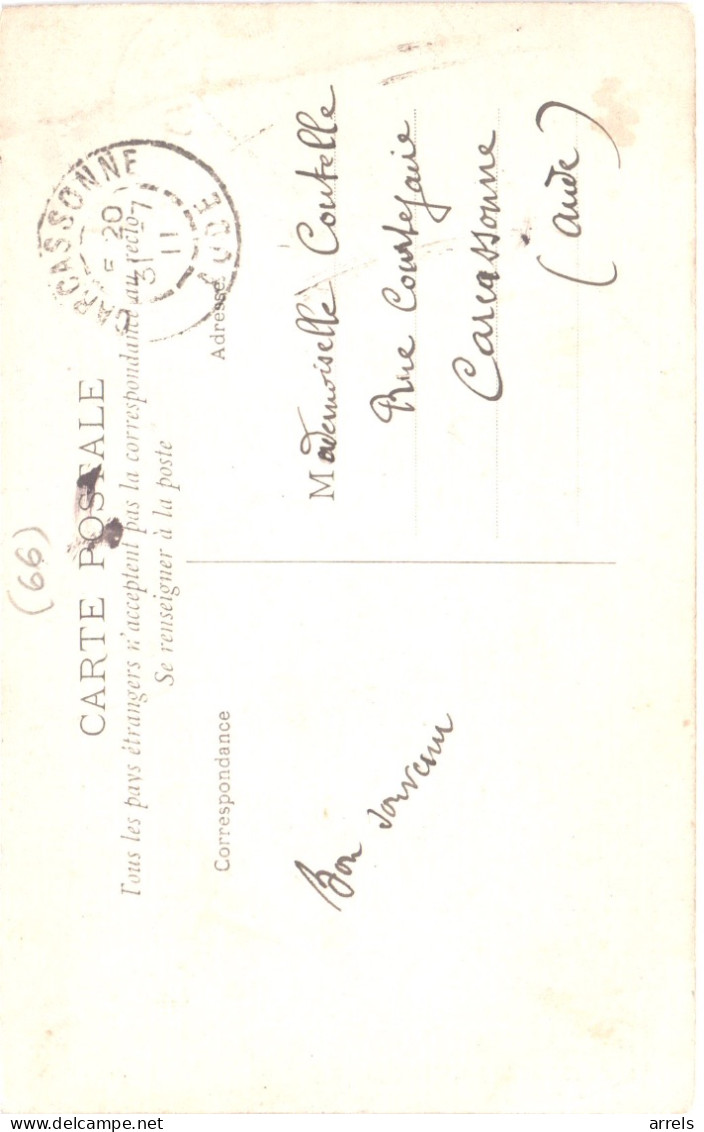 (66)
CARTE POSTALE
Tous les pays étrangers n'acceptent pas la correspondance au recto
Se renseigner à la poste
Correspondance
Bon souvenir
Adresse
CARCASSONNE
20
31-7
11
AUDE
Mademoiselle Coutelle
Rue Courtejaire
Carcassonne
(Aude)
arrels